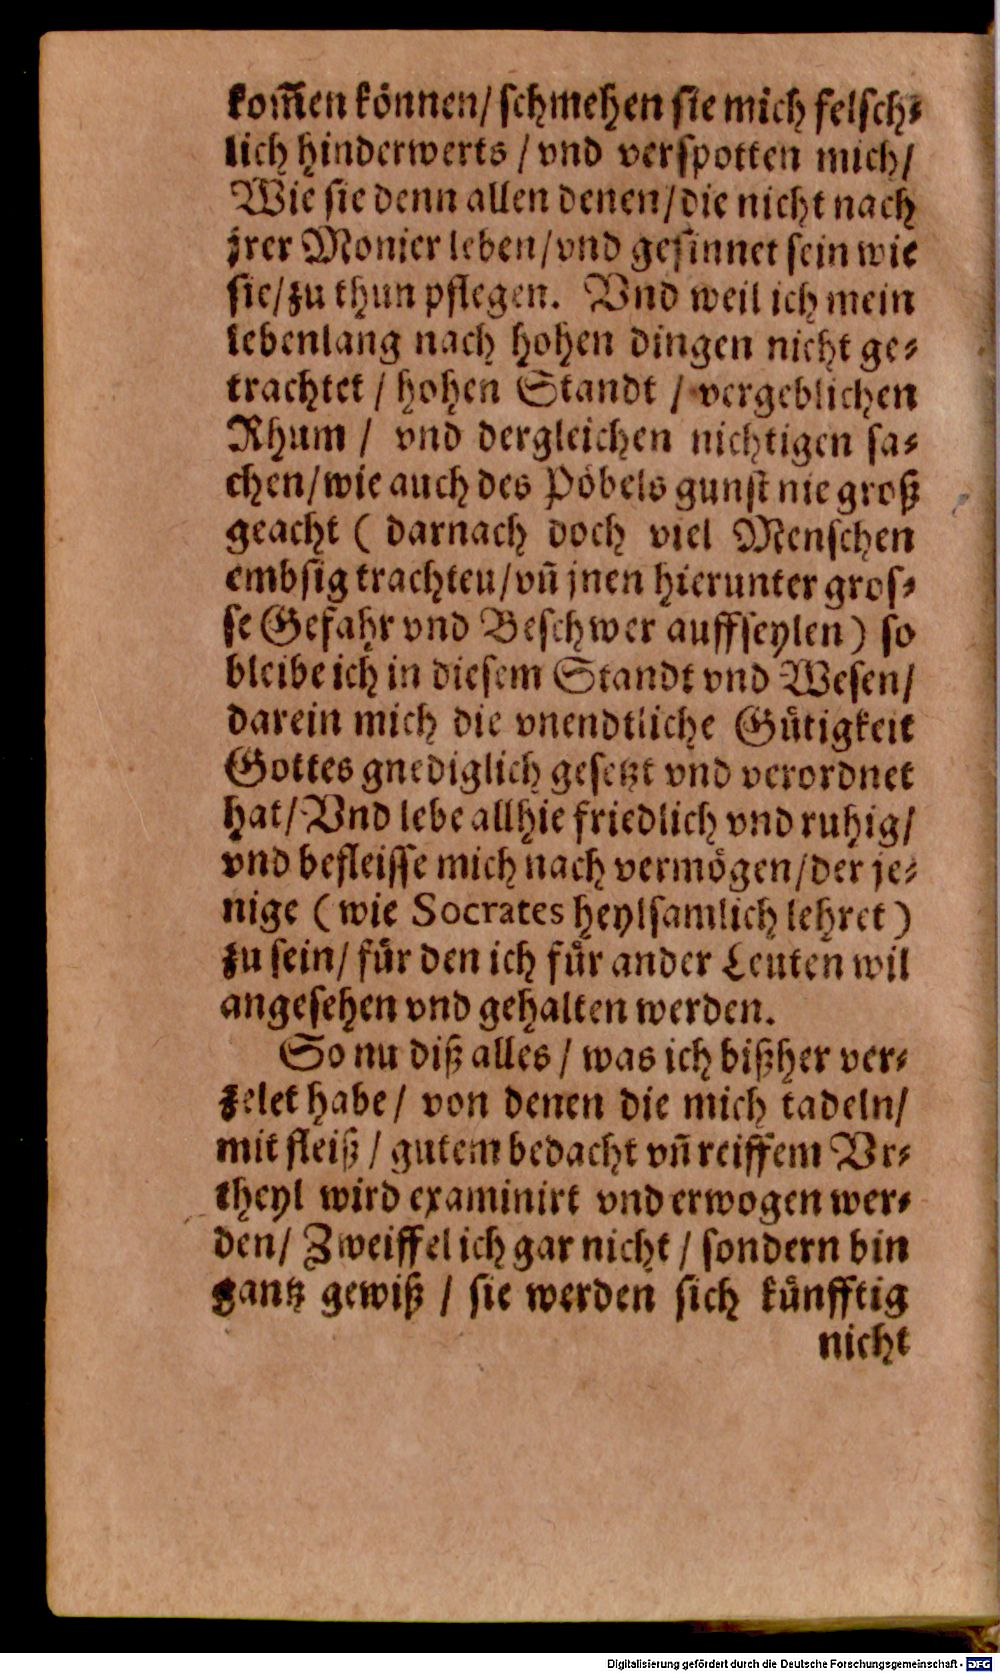 kom̃en können/ schmehen sie mich felsch⸗
lich hinderwerts / vnd verspotten mich/
Wie sie denn allen denen/ die nicht nach
jrer Monier leben/ vnd gesinnet sein wie
sie/ zu thun pflegen. Vnd weil ich mein
lebenlang nach hohen dingen nicht ge⸗
trachtet / hohen Standt / vergeblichen
Rhum / vnd dergleichen nichtigen sa⸗
chen/ wie auch des Pöbels gunst nie groß
geacht ( darnach doch viel Menschen
embsig trachteu/ vñ jnen hierunter gros⸗
se Gefahr vnd Beschwer auffseylen) so
bleibe ich in diesem Standt vnd Wesen/
darein mich die vnendtliche Gütigkeit
Gottes gnediglich gesetzt vnd verordnet
hat/ Vnd lebe allhie friedlich vnd ruhig/
vnd befleisse mich nach vermögen/ der je⸗
nige (wie Socrates heylsamlich lehret)
zu sein/ für den ich für ander Leuten wil
angesehen vnd gehalten werden.
So nu diß alles / was ich bißher ver⸗
zelet habe/ von denen die mich tadeln/
mit fleiß / gutem bedacht vñ reiffem Vr⸗
theyl wird examinirt vnd erwogen wer⸗
den/ Zweiffel ich gar nicht / sondern bin
gantz gewiß / sie werden sich künfftig
nicht
Digitalisierung gefördert durch die Deutsche Forschungsgemeinschaft - DFG